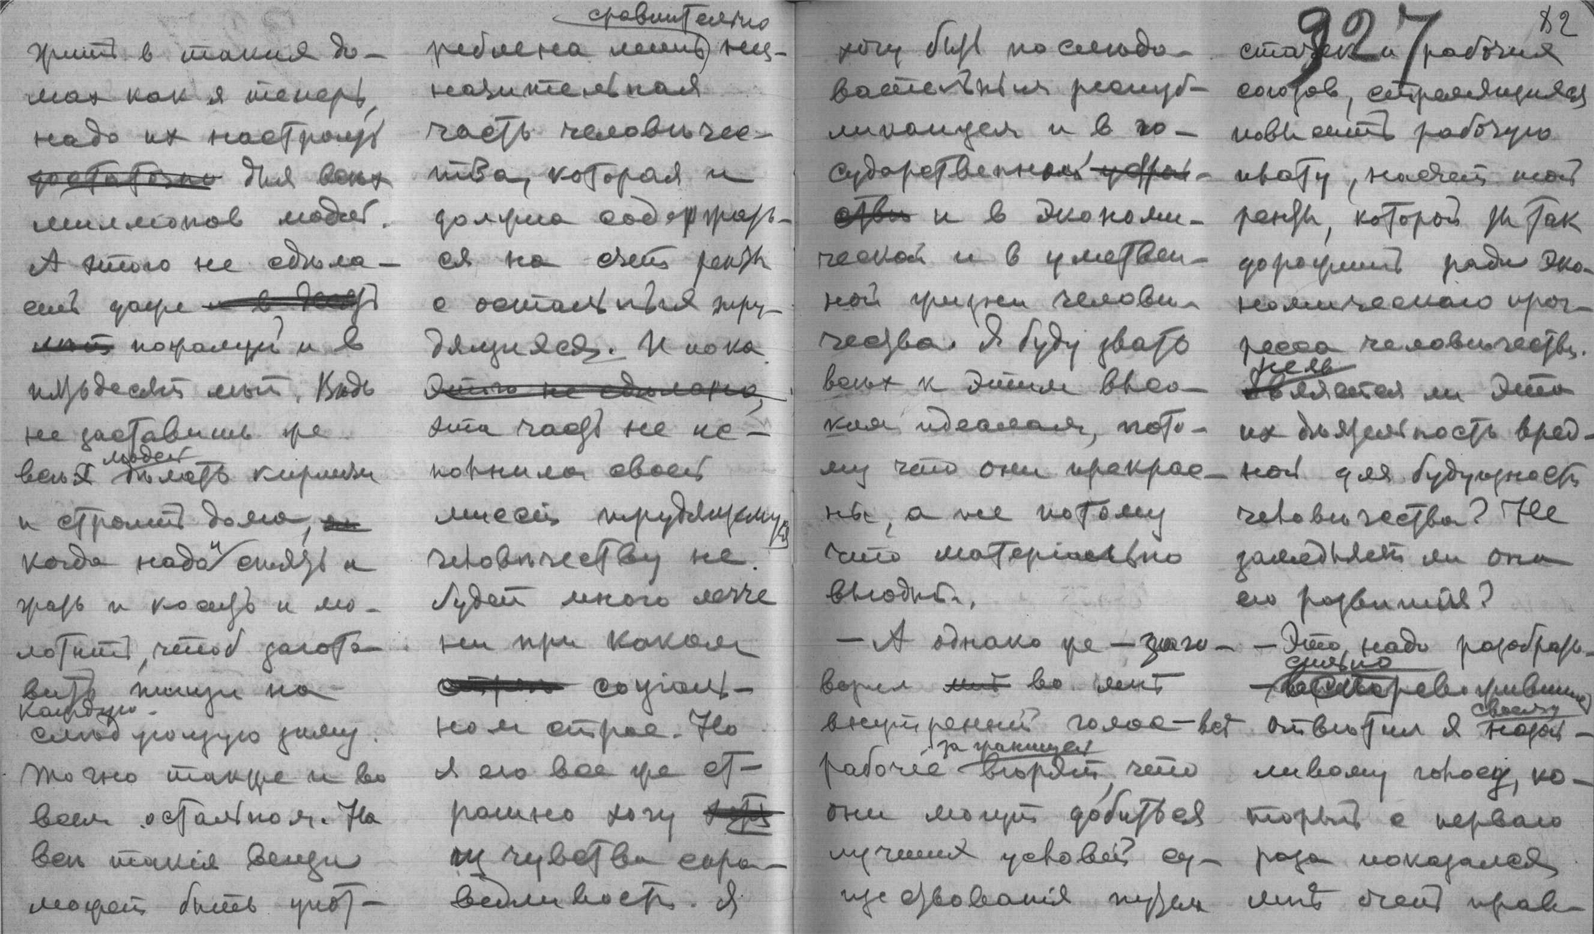 жить в такия до-
мах как я теперь,
надо их настроить
достаточно для всех
миллионов людей.
А этого не сдѣла-
ешь даже
пожалуй и в
пятьдесят лѣт. Вѣдь
не заставишь же
людей
всѣх дѣлать кирпичи
и строить дома,
когда надо и сѣять и
жать и косить и мо-
лотить, чтоб загото-
вить пищи на
каждую
следующую зиму.
Точно также и во
всем остальном. На
всѣ такія вещи
может быть упот-
сравнительно
реблена лишь нез-
начительная
часть человѣчес-
тва, которая и
должна содержать-
ся на счет ренты
с остальных тру-
дящихся. И пока
этого не сдѣлано,
эта часть не ис-
полнила своей
миссіи трудящемуся
человѣчеству не
будет много легче
ни при каком
соціаль-
ном строе. Но
я его все же ст-
рашно хочу
из чувства спра-
ведливости. Я
927
82
хочу быть послѣдо-
вательным респуб-
ликанцем и в го-
сударственной
и в экономи-
ческой и в умствен-
ной жизни человѣ-
чества. Я буду звать
всѣх к этим высо-
ким идеалам, пото-
му что они прекрас-
ны, а не потому
что матеріально
выгодны.
— А однако же — заго-
ворил во мнѣ
внутренній голос — вот
за границей
рабочіе говорят, что
они могут добиться
лучших условій су-
ществованія путем
стачек и рабочих
союзов, стремящихся
повысить рабочую
плату, на счет той
ренты, которой ты так
дорожишь ради эко-
номическаго прог-
ресса человѣчества.
Не является ли эта
их дѣятельность вред-
ной для будущности
человѣчества? Не
замедляет ли она
его развитія?
— Это надо разобрать —
сильно
встревожившись
своему
отвѣтил я
ливому голосу, ко-
торый с перваго
раза показался
мнѣ очень прав-